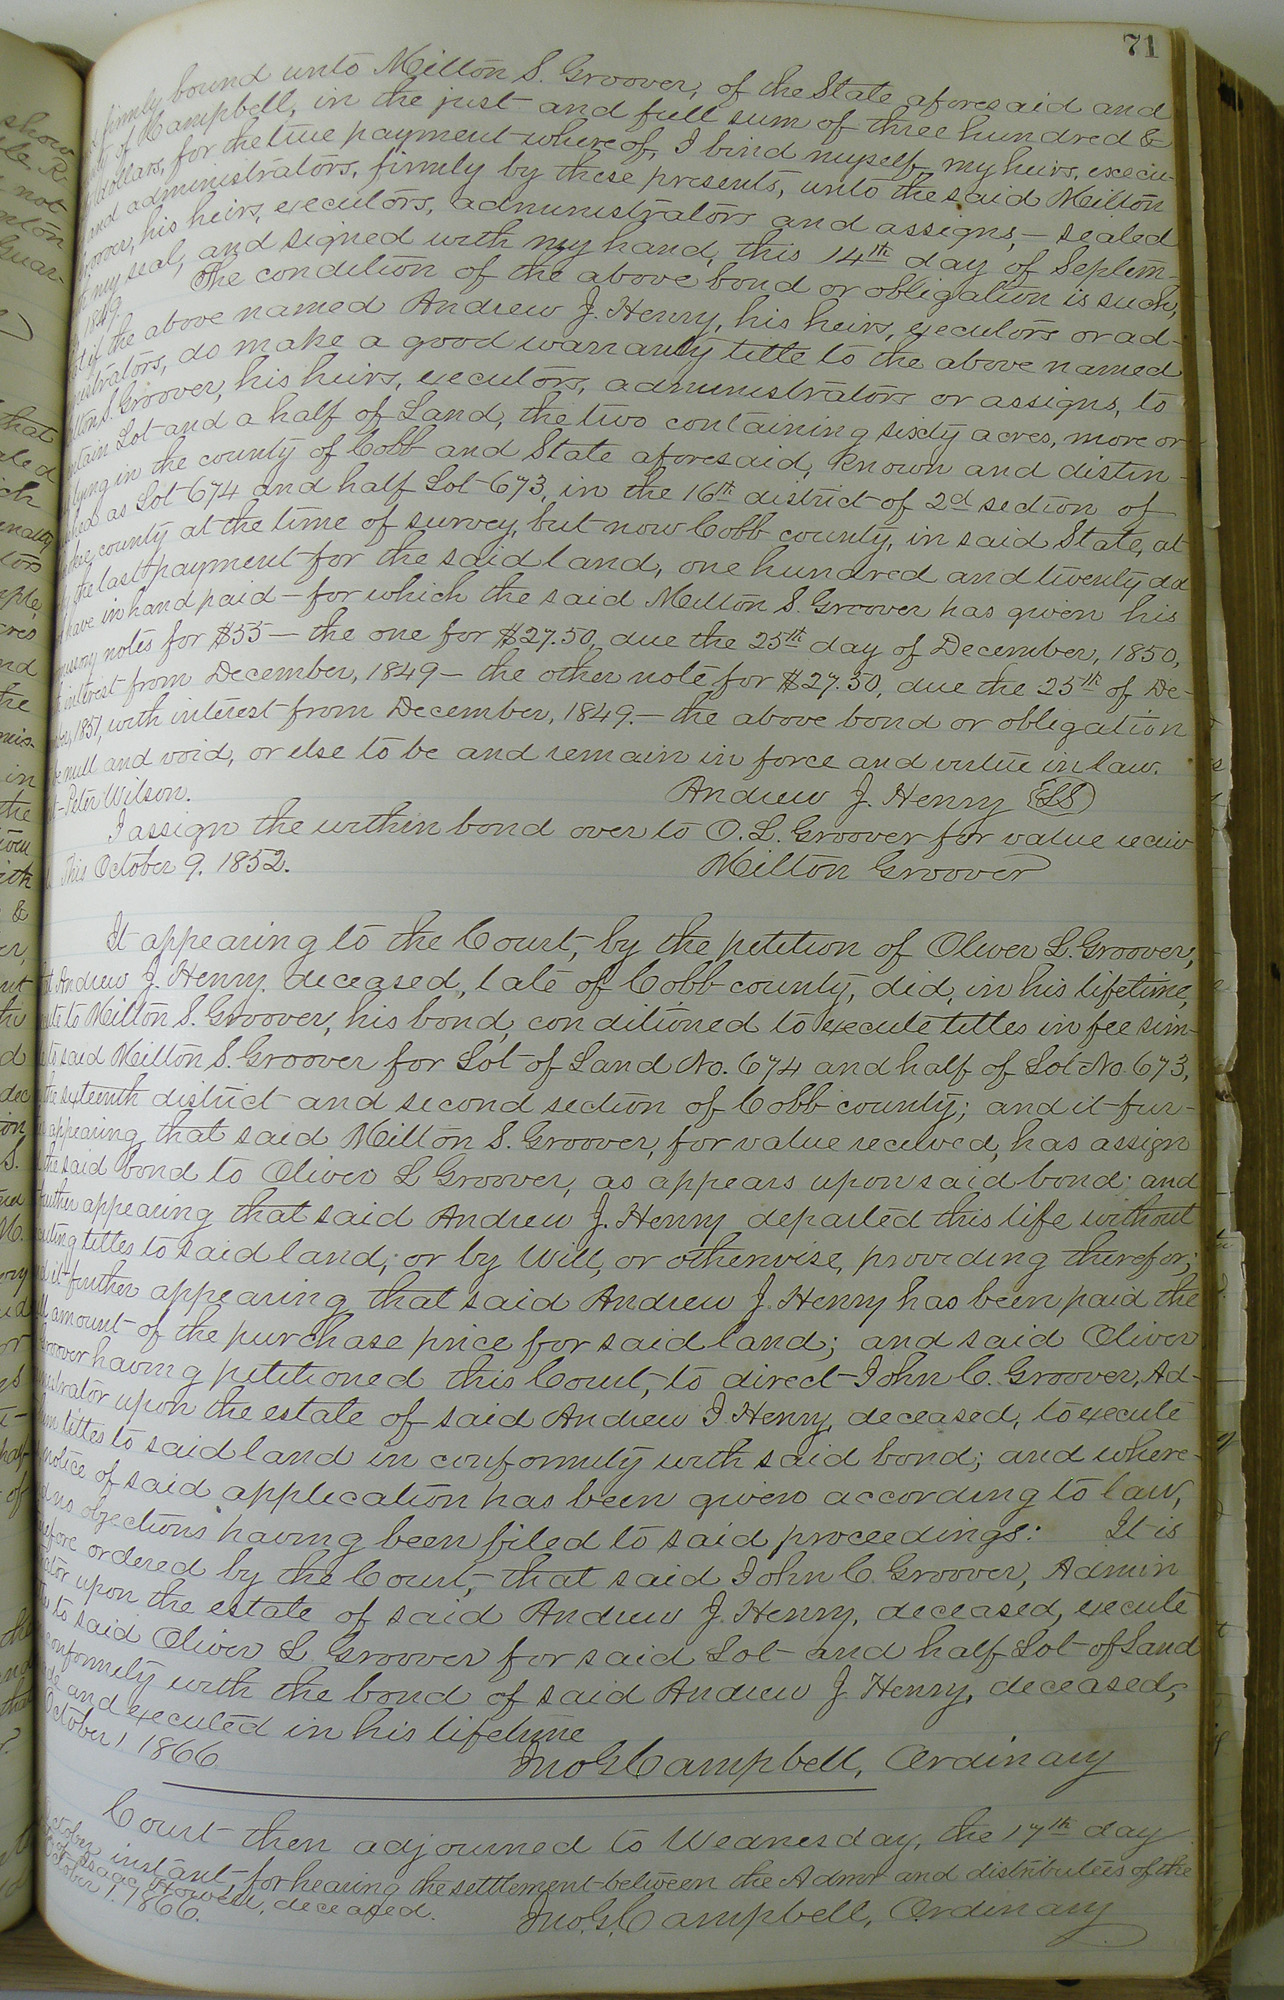 71
firmly bound unto Milton S. Groover, of the State aforesaid and
of Campbell, in the just and full sum of three hundred &
dollars, for the true payment whereof, I bind myself, my heirs, execu-
and administrators, firmly by these presents, unto the said Milton
Groover, his heirs, executors, administrators and assigns, – sealed
my seal, and signed with my hand, this 14th day of Septem-
1849.
The condition of the above bond or obligation is such,
if the above named Andrew J. Henry, his heirs, executors or ad-
istrators, do make a good warranty title to the above named
lton S. Groover, his heirs, executors, administrators or assigns, to
rtain Lot and a half of Land, the two containing sixty acres, more or
lying in the county of Cobb and State aforesaid, known and distin-
shed as Lot 674 and half Lot 673, in the 16th district of 2d section of
kee county at the time of survey, but now Cobb county, in said State, at
the last payment for the said land, one hundred and twenty
have in hand paid – for which the said Milton S. Groover has given his
missory notes for $55 – the one for $27.50, due the 25th day of December, 1850,
interest from December, 1849 – the other note for $27.50, due the 25th of De-
ber, 1851, with interest from December, 1849. – the above bond or obligation
null and void, or else to be and remain in force and virtue in law.
t – Peter Wilson. Andrew J. Henry (LS)
I assign the within bond over to O. L. Groover for value receiv
This October 9. 1852. Milton Groover
It appearing to the Court, by the petition of Oliver L. Groover,
t Andrew J. Henry, deceased, late of Cobb county, did, in his lifetime,
ute to Milton S. Groover, his bond, conditioned to execute titles in fee sim-
to said Milton S. Groover for Lot of Land No. 674 and half of Lot No. 673,
the sixteenth district and second section of Cobb county; and it fur-
appearing that said Milton S. Groover, for value received, has assign
the said bond to Oliver L Groover, as appears upon said bond; and
further appearing that said Andrew J. Henry departed this life without
cuting titles to said land, or by Will, or otherwise, providing therefor;
d it further appearing that said Andrew J. Henry has been paid the
amount of the purchase price for said land; and said Oliver
Groover having petitioned this Court, to direct John C. Groover, Ad-
nistrator upon the estate of said Andrew J Henry, deceased, to execute
titles to said land in conformity with said bond; and where-
notice of said application has been given according to law,
no objections having been filed to said proceedings: It is
refore ordered by the Court, that said John C. Groover, Admin
rator upon the estate of said Andrew J. Henry, deceased, execute
to said Oliver L Groover for said Lot and half Lot of Land
conformity with the bond of said Andrew J. Henry, deceased,
de and executed in his lifetime
October 1 1866. Jno G Campbell, Ordinary
Court then adjourned to Wednesday, the 17th day
ctober instant, for hearing the settlement between the Admr and distributees of the
Isaac Howell, deceased.
October 1. 1866. Jno. G. Campbell, Ordinary